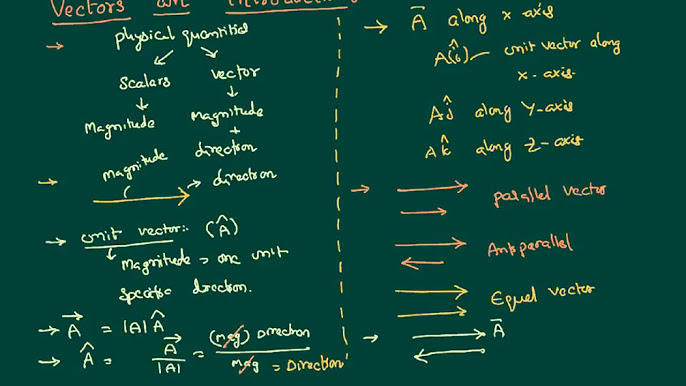 Vectors an introduction
→ physical quantities
Scalars vector
Magnitude Magnitude
+
direction
→ Magnitude → direction
→ unit vector:- (Â)
Magnitude = one unit
specific direction.
→ A⃗ = |A| Â
→ Â = A⃗/|A| = (mag) Direction/mag = Direction
→ A⃗ along x axis
A(î) – unit vector along
x-axis.
Aĵ along Y-axis
Ak̂ along Z-axis
→ parallel vector
Antiparallel
Equal vector
→ A⃗